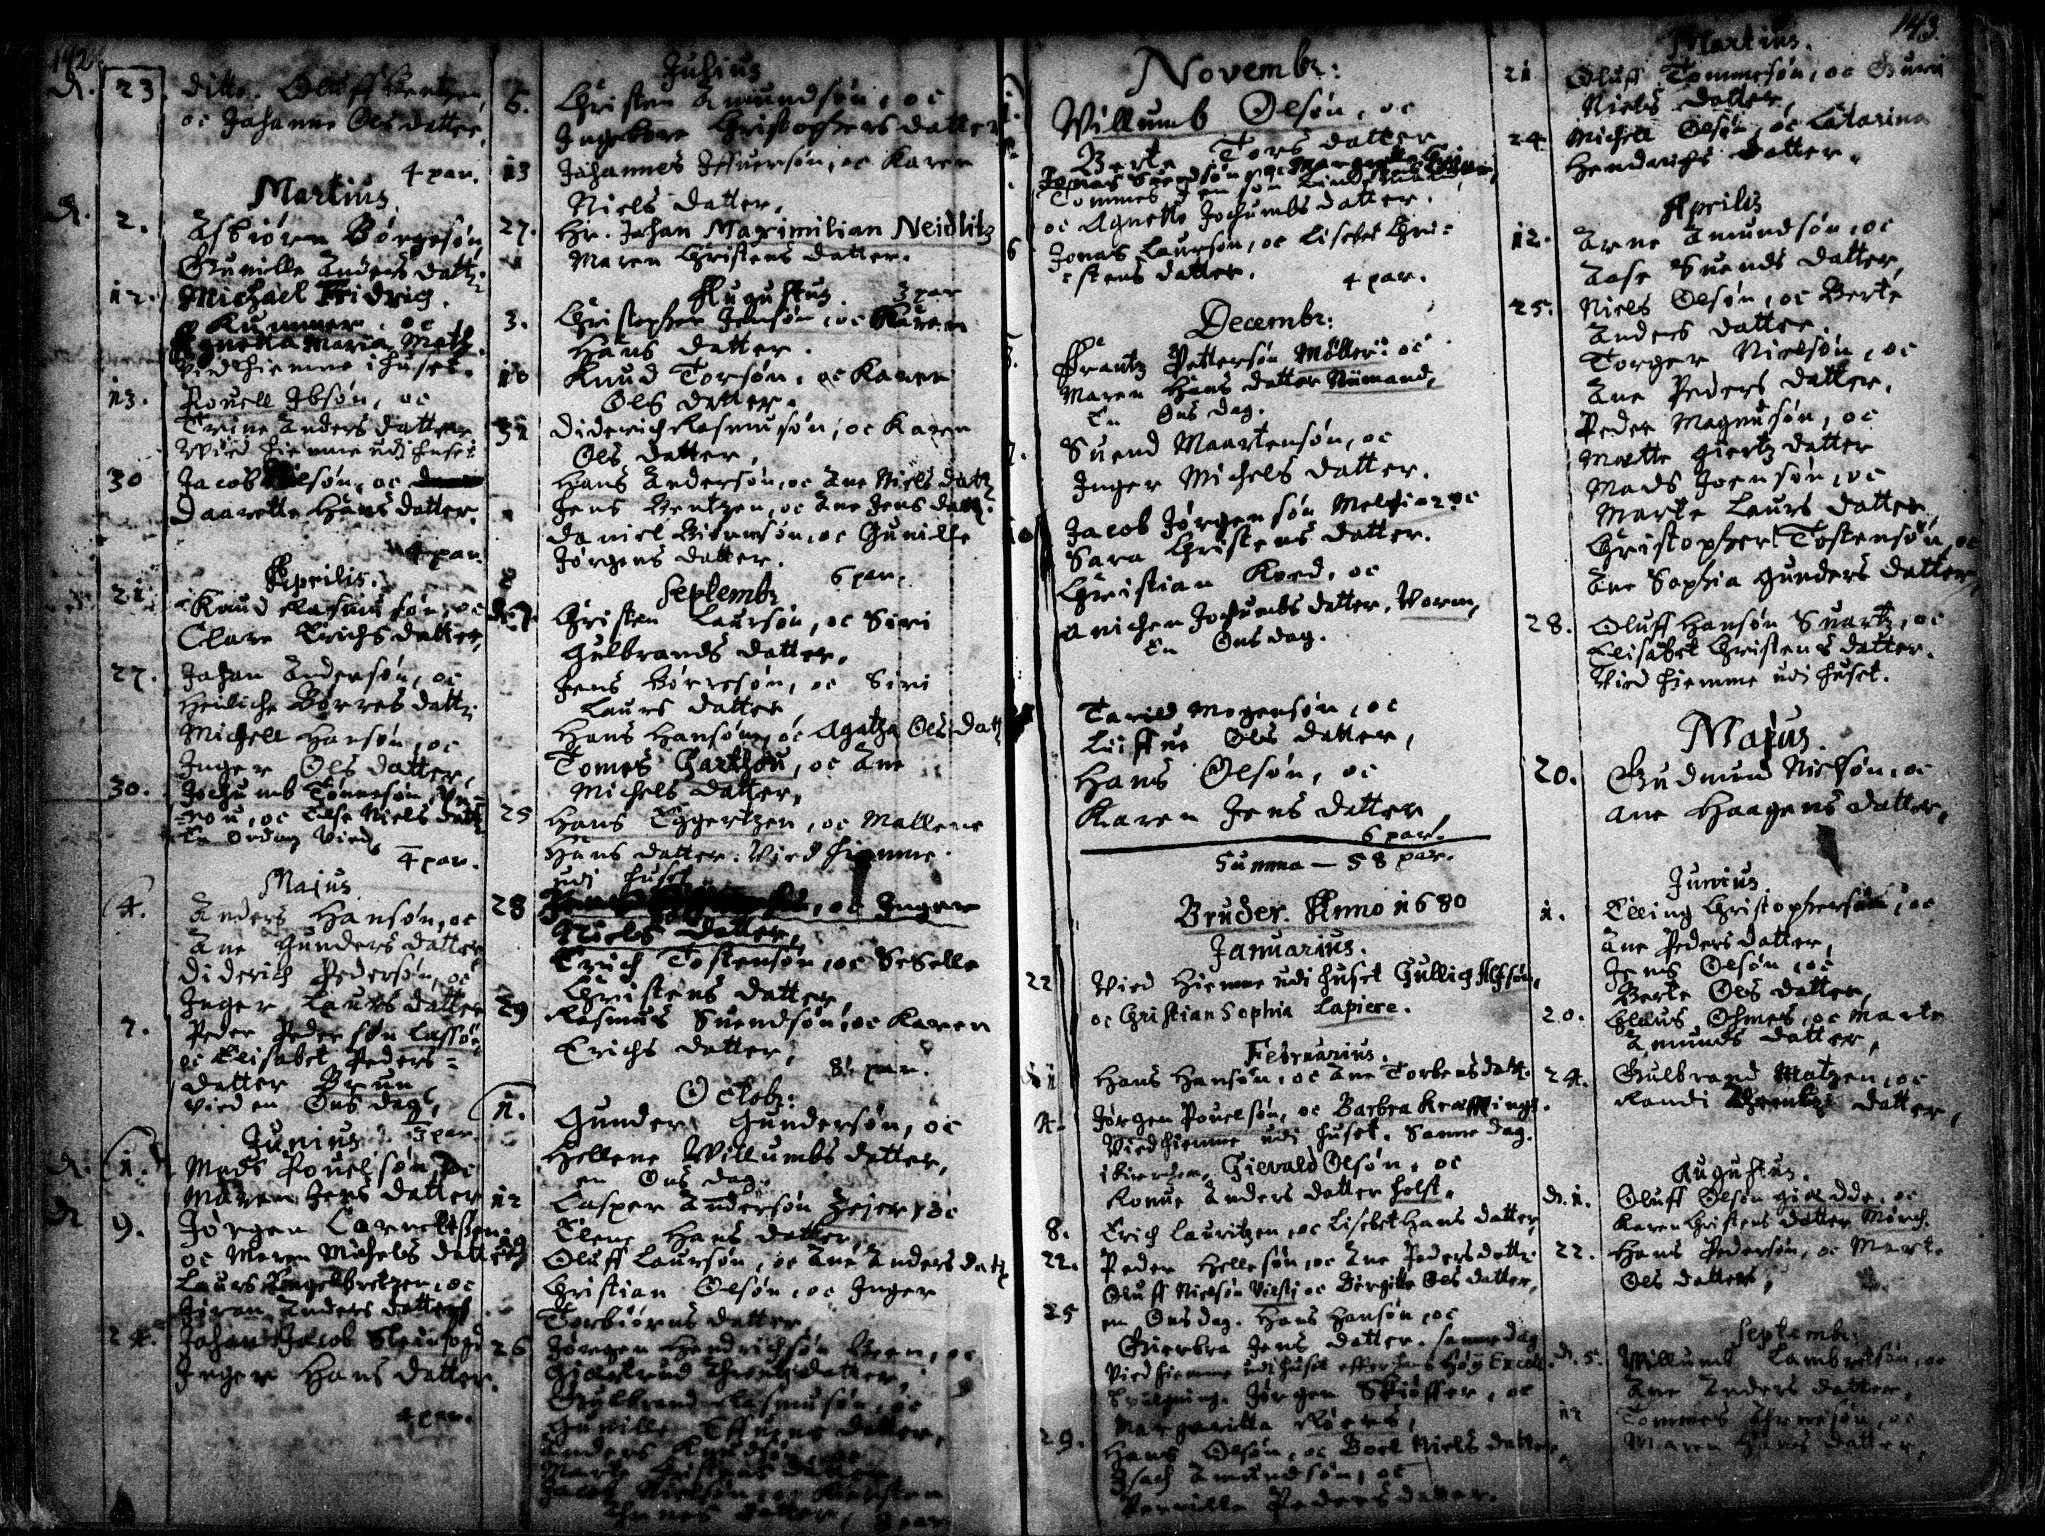 142.
D. 23. ditto. Oluff Bentzen,
oc Johanne Ols datter,
4 par.
Martius.
D. 2. Asbiørn Børgesøn
Gunille Anders datt:
12. Michael Fridrich.
Kummer. oc
Agneta Maria Motz.
Vied hiemme i huset.
13. Pouell Ibsøn, oc
Trine Anders datter
Wied hiemme udi huset
30 Jacob Nilsøn, oc
Daarette Hans datter.
4 par.
Aprilis.
21 Knud Rasmusøn, oc
Clare Erichs datter,
27. Johan Andersøn, oc
Heiliche Børres datt:
Michell Hansøn, oc
Inger Ols datter,
30. Jochumb Tønnesøn
oc Else Niels datt:
En Ordag Vied,
4 par.
Majus
4. Anders Hansøn, oc
Ane Gunders datter
Diderich Pedersøn, oc
Inger Laurs datter
7. Peder Pedersøn Lassøn
oc Elisabet Peders=
datter Brun
vied en Ons dag,
3 par.
Junius
D. 1. Mads Pouelsøn, oc
Maren Jens datter
D. 9. Jørgen Cornelissen
oc Maren Michels datter
Laurs Engelbretzen, oc
Siran Anders datter
24. Johan Jacob
Inger Hans datter.
4 par.
Julius
6. Christen Amundsøn, oc
Ingebore Christophers datter
13 Johannes Iffuersøn, oc Karen
Niels datter,
27. Hr. Johan Maximilian Neidlitz
Maren Christens datter.
3 par
Augustus
3. Christopher Jensøn, oc Karen
Hans datter.
10 Knud Torsøn, oc Karen
Ols datter.
31 Diderich Rasmusøn, oc Karen
Ols datter,
Hans Andersøn, oc Ane Niels datt:
Jens Bentzen, oc Ane Jens datt:
Daniel Biørnsøn, oc Gunille
Jørgens datter.
6 par.
Septembr
D. 7. Christen Laursøn, oc Siri
Gulbrands datter,
Jens Børresøn, oc Siri
Laurs datter
Hans Hansøn, oc Agatha Ols datt
Tomes Garthou, oc Ane
Michels datter,
25 Hans Eggertzen, oc Mallene
Hans datter. Vied hiemme
udi huset
28 oc Inger
Niels datter,
Truch Tostensøn, oc Seselle
Christens datter,
29 Rasmus Suendsøn, oc Karen
Erichs datter,
8 par.
Octobr:
1. Gunder Gundersøn, oc
Hellene Willumbs datter,
en Ons dag.
12 Casper Andersøn Zejer, oc
Elene Hans datter
19 Oluff Laursøn, oc Ane Anders datt
Christian Olsøn, oc Inger
Torbiørns datter
26 Jørgen Hendrichsøn Veen, oc
Giertrud datter,
Gulbrand Rasmusøn, oc
Gunille datter,
Anders Knudsøn, oc
Marte Christens datter
Jacob Nielsøn, oc Kirsten
datter, 8 par
Novembr:
Willumb Olsøn, oc
Berte Tors datter
Jonas Suendsøn, oc
Tommes
oc Agnette Jochumbs datter.
6 Jonas Laursøn, oc Lisebet Chri=
=stens datter.
4 par.
Decembr:
3. Frantz Pettersøn Møller: oc
Maren Hans datter Nümand,
En Ons dag.
7. Suend Maartensøn, oc
Inger Michels datter.
10 Jacob Jørgensøn Melchior, oc
Sara Christens datter.
Christian Kord, oc
Anichen Jochumbs datter. Worm,
En Ons dag.
Tarild Mogensøn, oc
Liffue Ols datter,
Hans Olsøn, oc
Karen Jens datter,
6 par.
Summa — 58 par.
Bruder. Anno 1680
Januarius.
22 Vied Hiemme udi huset Gullich Alfsøn,
oc Christian Sophia Lapiere.
Februarius.
D. 1 Hans Hansøn, oc Ane Torbens datt.
4. Jørgen Pouelsøn, oc Barbra Kræfftings.
Vied hiemme udi huset. Samme dag.
i kierchen, Gievald Olsøn, oc
Ronue Anders datter Holst.
8. Erich Lauritzen, oc Lisebet Hans datter
22. Peder Hellesøn, oc Ane Peders datt:
Oluff Nielsøn Vilsti oc Børgitte Ols datter,
25 en Ons dag. Hans Hansøn, oc
Guerbra Jens datter. samme dag
Vied hiemme udi huset effter hans Høy Excell.
Jørgen Skiøffer, oc
Margaritta
29. Hans Olsøn, oc Boel Niels datter,
Isach Amundsøn, oc
Pernille Peders datter.
143.
Martius.
21 Oluff Tommesøn, oc Guri
Niels datter,
24 Michell Olsøn, oc Catarina
Hendrichs datter.
Aprilis
12. Arne Amundsøn, oc
Aase Suends datter,
25. Niels Olsøn, oc Berte
Anders datter.
Torger Nielsøn, oc
Ane Peders datter.
Peder Magnusøn, oc
Mætte Giertz datter
Mads Joensøn, oc
Marte Laurs datter,
Christopher Tostensøn, oc
Ane Sophia Gunders datter,
28. Oluff Hansøn Suartz, oc
Elisabet Christens datter.
Vied hiemme udi huset.
Majus.
20. Gudmund Nielsøn, oc
Ane Haagens datter,
Junius
1. Elling Christophersøn, oc
Ane Peders datter,
Jens Olsøn, oc
Berte Ols datter,
20. Claus Ohmes, oc Marte
Amunds datter,
24. Gulbrand Matzen, oc
Randi datter,
Augustus.
D. 1. Oluff Olsøn giædde, oc
Karen Christens datter Mørch.
22. Hans Pedersøn, oc Marte
Ols datter,
Septembr:
D. 5. Willumb Lambretsøn, oc
Ane Anders datter,
12 Tommes Arnesøn, oc
Maren Hans datter,